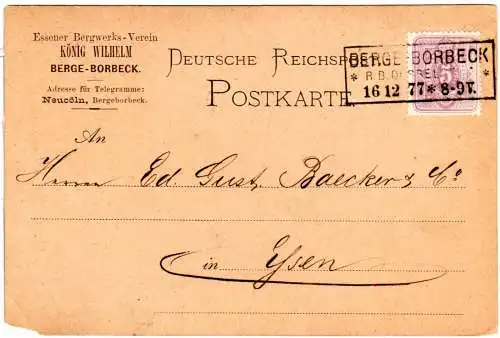 Essener Bergwerks-Verein
KÖNIG WILHELM
BERGE-BORBECK.
Adresse für Telegramme:
Neucöln, Bergeborbeck.
DEUTSCHE REICHSPOST
POSTKARTE
BERGE-BORBECK
* R.B.DÜSSEL *
16 12 77 * 8-9V.
An
Herrn Ed. Gust. Baecker & Co
in Essen